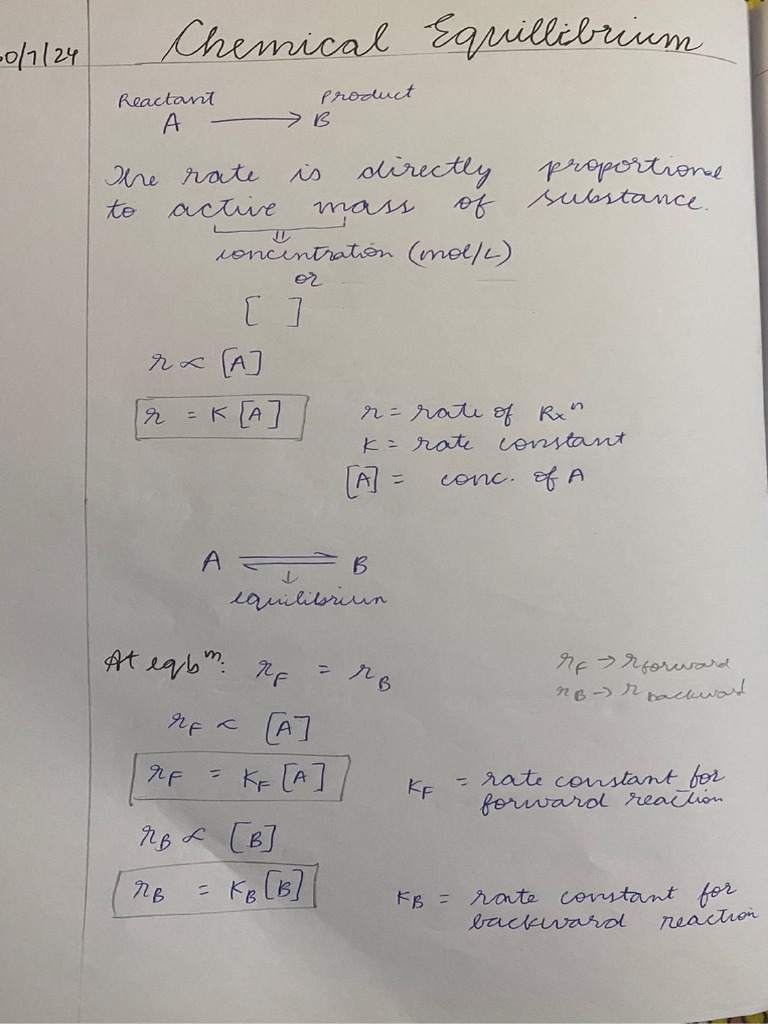 0/7/24
Chemical Equillibrium
Reactant Product
A ⟶ B
The rate is directly proportional
to active mass of substance.
⇓
concentration (mol/L)
or
[ ]
r ∝ [A]
r = K [A]
r = rate of Rxⁿ
K = rate constant
[A] = conc. of A
A ⇌ B
↓
equilibrium
At eqbᵐ: r_F = r_B
r_F → r_forward
r_B → r_backward
r_F ∝ [A]
r_F = K_F [A]
K_F = rate constant for
forward reaction
r_B ∝ [B]
r_B = K_B [B]
K_B = rate constant for
backward reaction